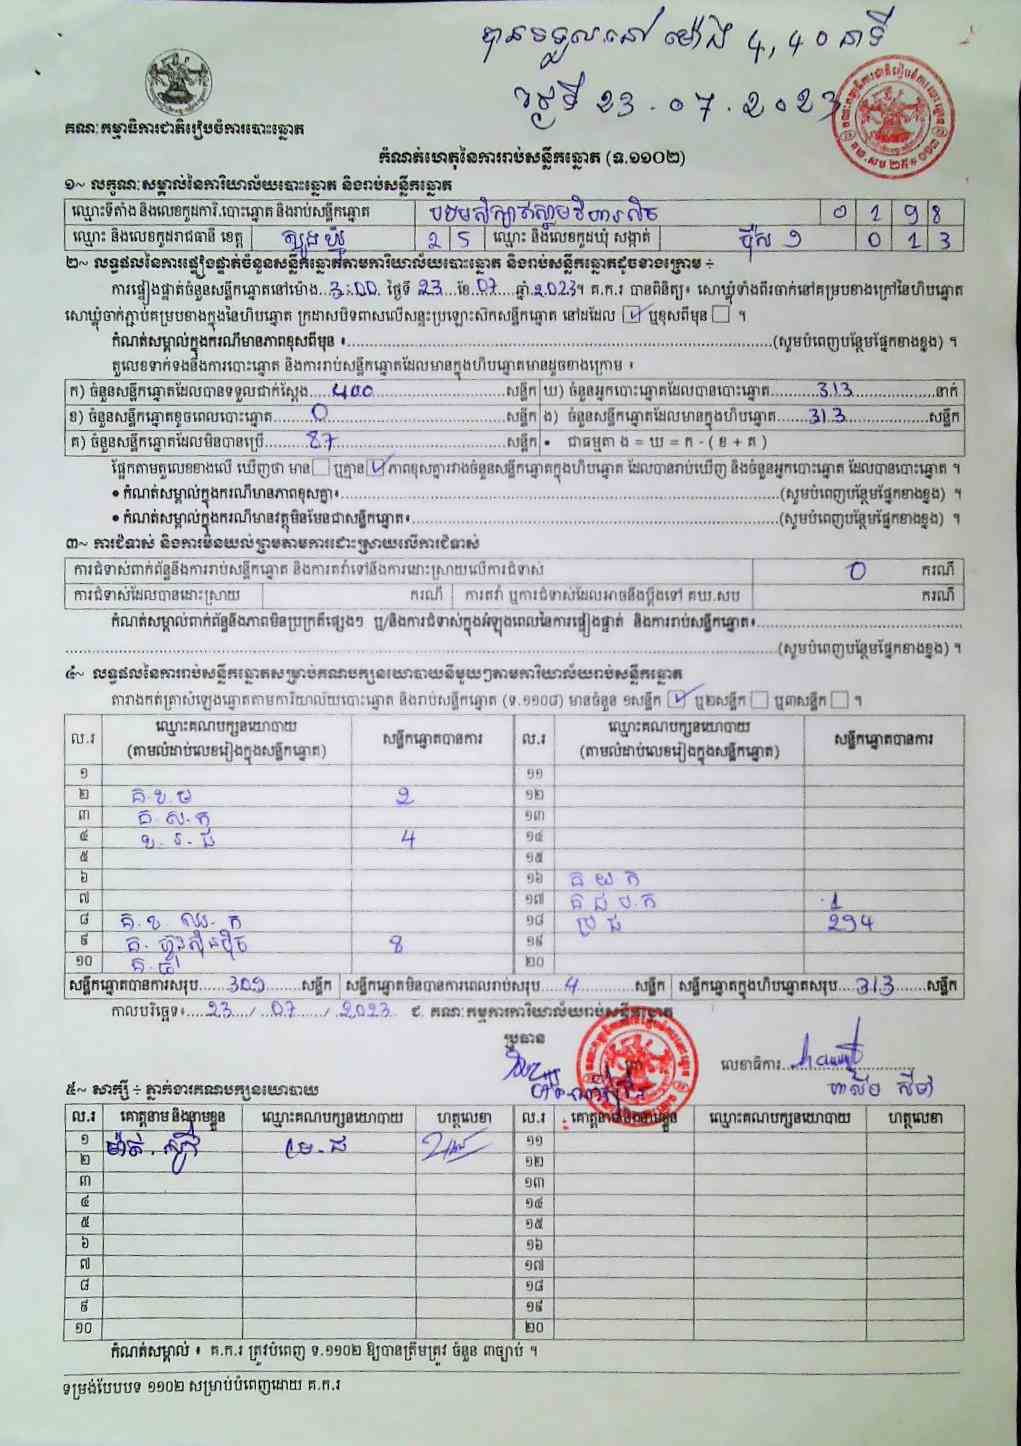 បានទទួលនៅ ម៉ោង 4,40 នាទី
ថ្ងៃទី 23.07.2023
គណៈកម្មាធិការជាតិរៀបចំការបោះឆ្នោត
កំណត់ហេតុនៃការរាប់សន្លឹកឆ្នោត (ទ.១១០២)
១~ លក្ខណៈសម្គាល់នៃការិយាល័យបោះឆ្នោត និងរាប់សន្លឹកឆ្នោត
ឈ្មោះទីតាំង និងលេខកូដការិ.បោះឆ្នោត និងរាប់សន្លឹកឆ្នោត 0 1 9 8
ឈ្មោះ និងលេខកូដរាជធានី ខេត្ត ត្បូងឃ្មុំ 2 5 ឈ្មោះ និងលេខកូដឃុំ សង្កាត់ ប៉ុស ១ 0 1 3
២~ លទ្ធផលនៃការផ្ទៀងផ្ទាត់ចំនួនសន្លឹកឆ្នោតតាមការិយាល័យបោះឆ្នោត និងរាប់សន្លឹកឆ្នោតដូចខាងក្រោម ÷
ការផ្ទៀងផ្ទាត់ចំនួនសន្លឹកឆ្នោតនៅម៉ោង...3:00 ថ្ងៃទី 23 ខែ 07 ឆ្នាំ 2023។ គ.ក.រ បានពិនិត្យ៖ សោឃ្លុំទាំងពីរចាក់នៅគម្របខាងក្រៅនៃហិបឆ្នោត
សោឃ្លុំចាក់ភ្ជាប់គម្របខាងក្នុងនៃហិបឆ្នោត ក្រដាសបិទពាសលើសន្ទះប្រឡោះសិកសន្លឹកឆ្នោត នៅដដែល ☑ ឬខុសពីមុន ☐ ។
កំណត់សម្គាល់ក្នុងករណីមានភាពខុសពីមុន ៖ (សូមបំពេញបន្ថែមផ្នែកខាងខ្នង) ។
តួលេខទាក់ទងនឹងការបោះឆ្នោត និងការរាប់សន្លឹកឆ្នោតដែលមានក្នុងហិបឆ្នោតមានដូចខាងក្រោម ៖
ក) ចំនួនសន្លឹកឆ្នោតដែលបានទទួលជាក់ស្តែង 400 សន្លឹក ឃ) ចំនួនអ្នកបោះឆ្នោតដែលបានបោះឆ្នោត 313 នាក់
ខ) ចំនួនសន្លឹកឆ្នោតខូចពេលបោះឆ្នោត 0 សន្លឹក ង) ចំនួនសន្លឹកឆ្នោតដែលមានក្នុងហិបឆ្នោត 313 សន្លឹក
គ) ចំនួនសន្លឹកឆ្នោតដែលមិនបានប្រើ 87 សន្លឹក • ជាធម្មតា ង = ឃ = ក - ( ខ + គ )
ផ្អែកតាមតួលេខខាងលើ ឃើញថា មាន ☐ ឬគ្មាន ☑ ភាពខុសគ្នារវាងចំនួនសន្លឹកឆ្នោតក្នុងហិបឆ្នោត ដែលបានរាប់ឃើញ និងចំនួនអ្នកបោះឆ្នោត ដែលបានបោះឆ្នោត ។
• កំណត់សម្គាល់ក្នុងករណីមានភាពខុសគ្នា៖ (សូមបំពេញបន្ថែមផ្នែកខាងខ្នង) ។
• កំណត់សម្គាល់ក្នុងករណីមានវត្ថុមិនមែនជាសន្លឹកឆ្នោត៖ (សូមបំពេញបន្ថែមផ្នែកខាងខ្នង) ។
៣~ ការជំទាស់ និងការមិនយល់ព្រមតាមការដោះស្រាយលើការជំទាស់
ការជំទាស់ពាក់ព័ន្ធនឹងការរាប់សន្លឹកឆ្នោត និងការតវ៉ាទៅនឹងការដោះស្រាយលើការជំទាស់ 0 ករណី
ការជំទាស់ដែលបានដោះស្រាយ ករណី ការតវ៉ា ឬការជំទាស់ដែលអាចនឹងប្តឹងទៅ គឃ.សប ករណី
កំណត់សម្គាល់ពាក់ព័ន្ធនឹងភាពមិនប្រក្រតីផ្សេងៗ ឬ/និងការជំទាស់ក្នុងអំឡុងពេលនៃការផ្ទៀងផ្ទាត់ និងការរាប់សន្លឹកឆ្នោត៖
(សូមបំពេញបន្ថែមផ្នែកខាងខ្នង) ។
៤~ លទ្ធផលនៃការរាប់សន្លឹកឆ្នោតសម្រាប់គណបក្សនយោបាយនីមួយៗតាមការិយាល័យរាប់សន្លឹកឆ្នោត
តារាងកត់ត្រាសំឡេងឆ្នោតតាមការិយាល័យបោះឆ្នោត និងរាប់សន្លឹកឆ្នោត (ទ.១១០៨) មានចំនួន ១សន្លឹក ☑ ឬ២សន្លឹក ☐ ឬ៣សន្លឹក ☐ ។
ល.រ ឈ្មោះគណបក្សនយោបាយ (តាមលំដាប់លេខរៀងក្នុងសន្លឹកឆ្នោត) សន្លឹកឆ្នោតបានការ ល.រ ឈ្មោះគណបក្សនយោបាយ (តាមលំដាប់លេខរៀងក្នុងសន្លឹកឆ្នោត) សន្លឹកឆ្នោតបានការ
១ ១១
២ គ.ខ.ម 2 ១២
៣ គ.ស.ក ១៣
៤ ខ.រ.ជ 4 ១៤
៥ ១៥
៦ ១៦ គ យ ក
៧ ១៧ គ ជ ប.ក 1
៨ គ.ខ ឈរ.ក ១៨ ប្រ ជ 294
៩ គ.ហ្វ៊ុនស៊ិនប៉ិច 8 ១៩
១០ គ. ២០
សន្លឹកឆ្នោតបានការសរុប 309 សន្លឹក សន្លឹកឆ្នោតមិនបានការពេលរាប់សរុប 4 សន្លឹក សន្លឹកឆ្នោតក្នុងហិបឆ្នោតសរុប 313 សន្លឹក
កាលបរិច្ឆេទ៖ 23 / 07 / 2023 ជ. គណៈកម្មការការិយាល័យរាប់សន្លឹកឆ្នោត
ប្រធាន
លេខាធិការ
៥~ សាក្សី ÷ ភ្នាក់ងារគណបក្សនយោបាយ
ល.រ គោត្តនាម និងនាមខ្លួន ឈ្មោះគណបក្សនយោបាយ ហត្ថលេខា ល.រ គោត្តនាម និងនាមខ្លួន ឈ្មោះគណបក្សនយោបាយ ហត្ថលេខា
១ ១១
២ ១២
៣ ១៣
៤ ១៤
៥ ១៥
៦ ១៦
៧ ១៧
៨ ១៨
៩ ១៩
១០ ២០
កំណត់សម្គាល់ ៖ គ.ក.រ ត្រូវបំពេញ ទ.១១០២ ឱ្យបានត្រឹមត្រូវ ចំនួន ៣ច្បាប់ ។
ទម្រង់បែបបទ ១១០២ សម្រាប់បំពេញដោយ គ.ក.រ